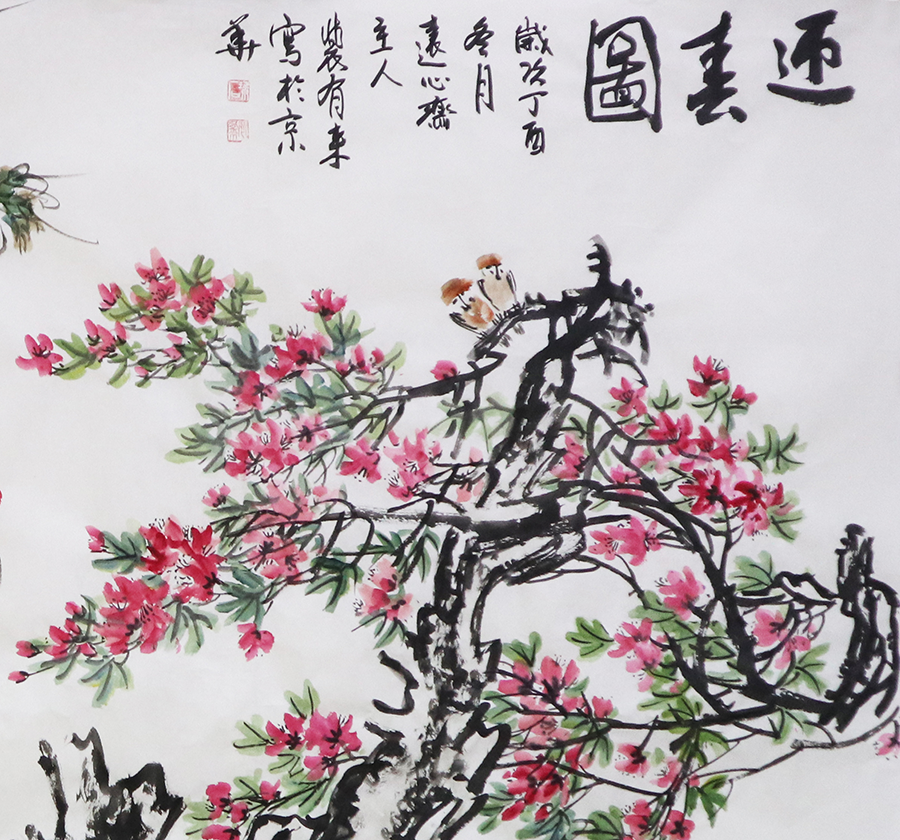 迎春圖
歲次丁酉
冬月
遠心齋
主人
裴有来
寫於京
華